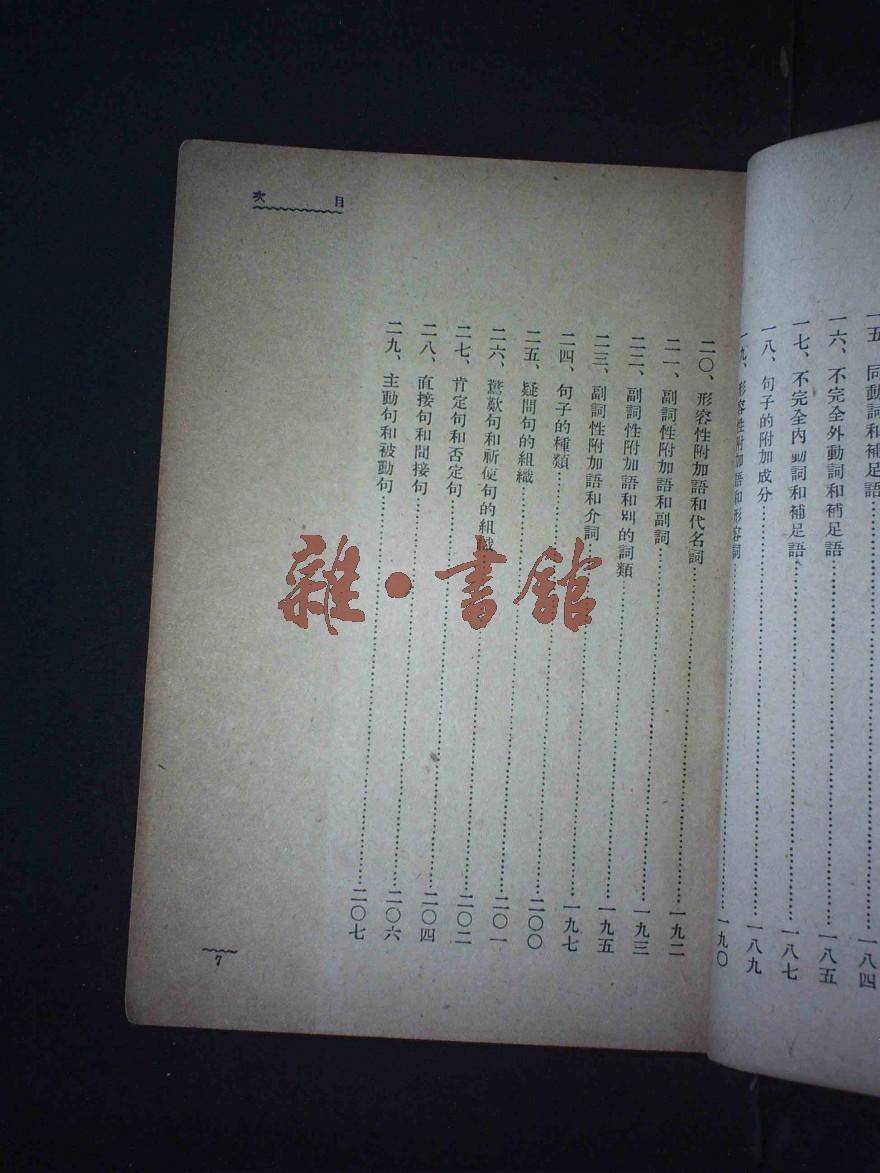 目次
一五、同動詞和補足語……一八四
一六、不完全外動詞和補足語……一八五
一七、不完全內動詞和補足語……一八七
一八、句子的附加成分……一八九
一九、形容性附加語和形容詞……一九〇
二〇、形容性附加語和代名詞……一九二
二一、副詞性附加語和副詞……一九三
二二、副詞性附加語和別的詞類……一九五
二三、副詞性附加語和介詞……一九七
二四、句子的種類……二〇〇
二五、疑問句的組織……二〇一
二六、驚歎句和祈使句的組織……二〇二
二七、肯定句和否定句……二〇四
二八、直接句和間接句……二〇六
二九、主動句和被動句……二〇七
7
雜·書館